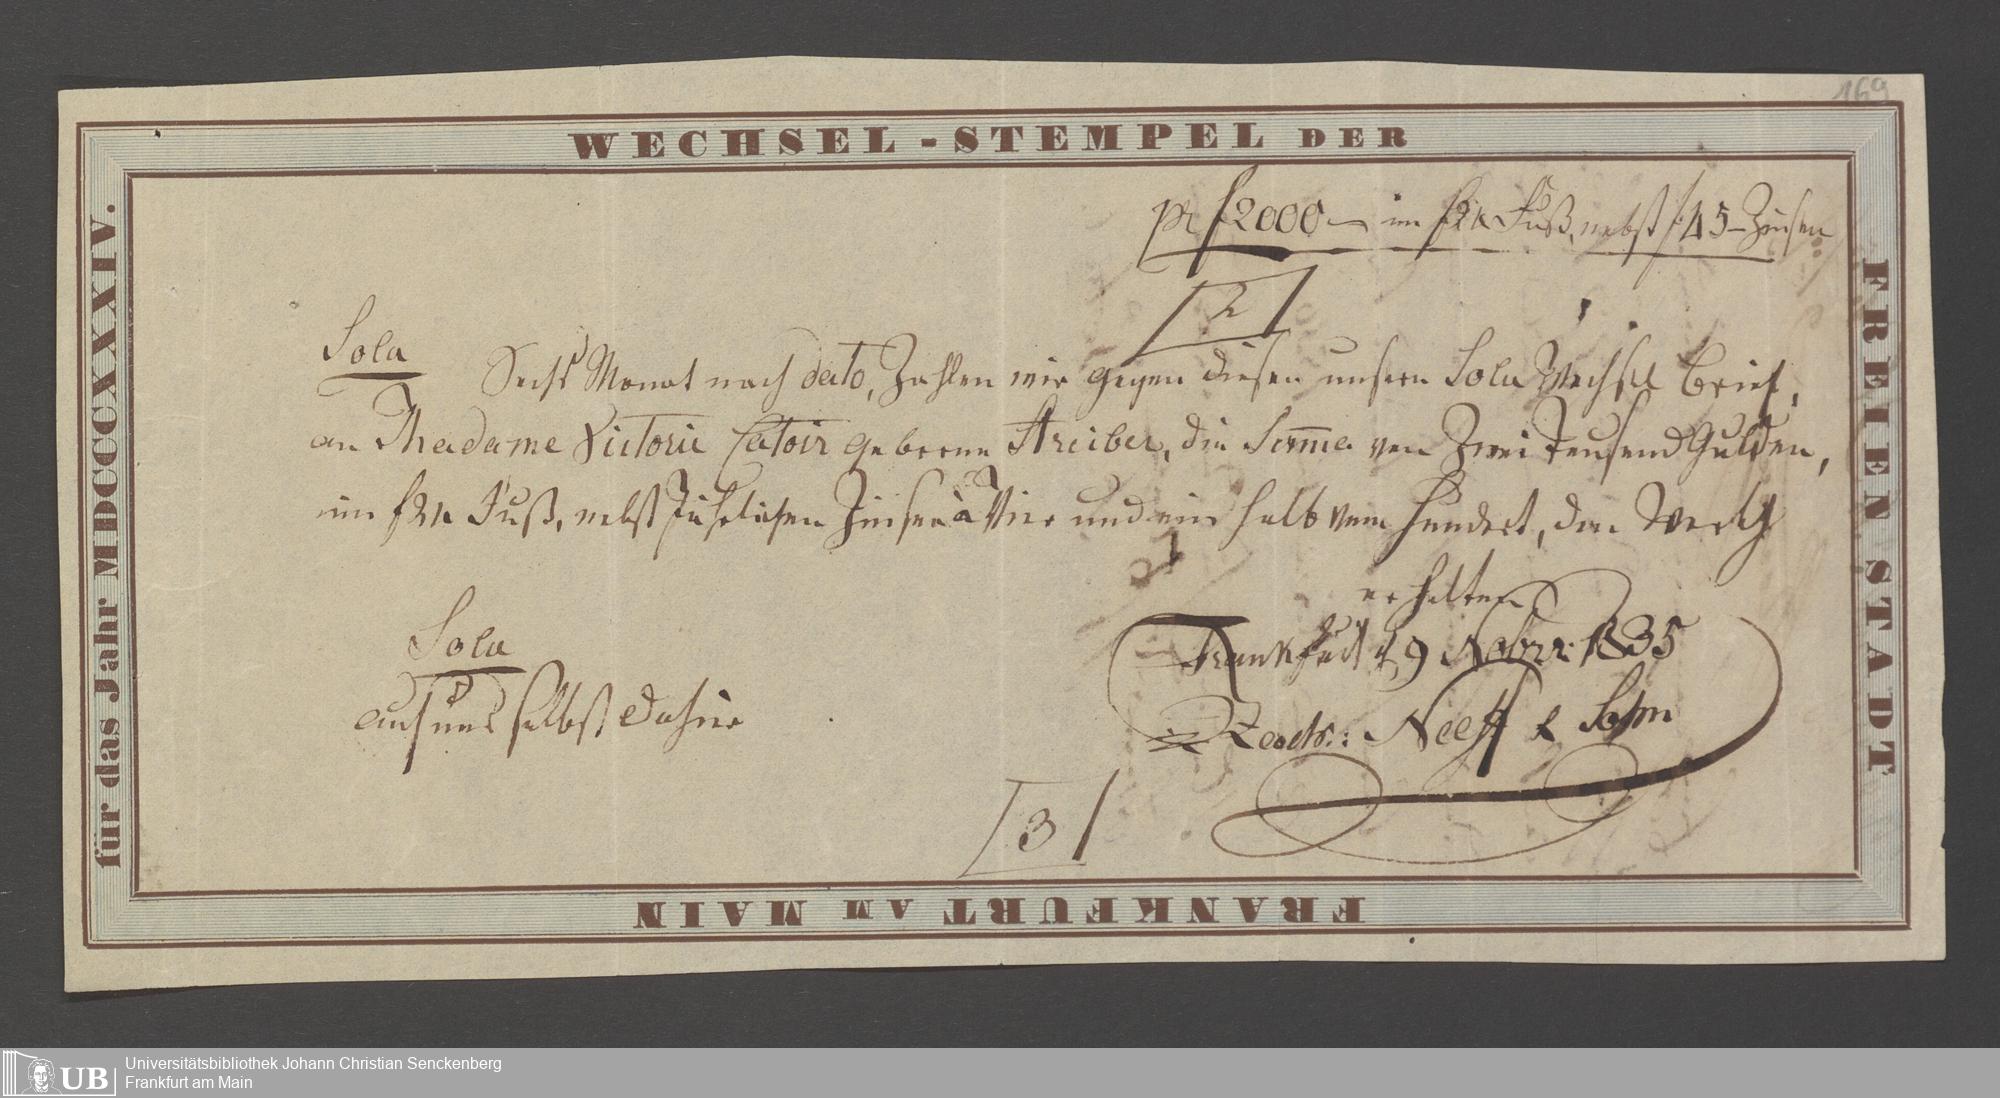 169
WECHSEL-STEMPEL DER
FREIEN STADT
FRANKFURT AM MAIN
für das Jahr MDCCCXXXIV.
pr f2000 — im f24 Fuß, nebst f.45 — Zinsen
2
Sola
Sechs Monat nach dato, Zahlen wir gegen diesen unsern Sola Wechsel Brief,
an Madame Victorie Catoir geborne Streiber, die Summa von Zwei Tausend Gulden,
im f24 Fuß, nebst Jährlichen Zinsen à Vier und ein halb vom hundert, den Werth
erhalten
Frankfurt d 9 Nobr: 1835
Sola
auf uns selbst dahier
Neeff & Sohn
3
UB
Universitätsbibliothek Johann Christian Senckenberg
Frankfurt am Main